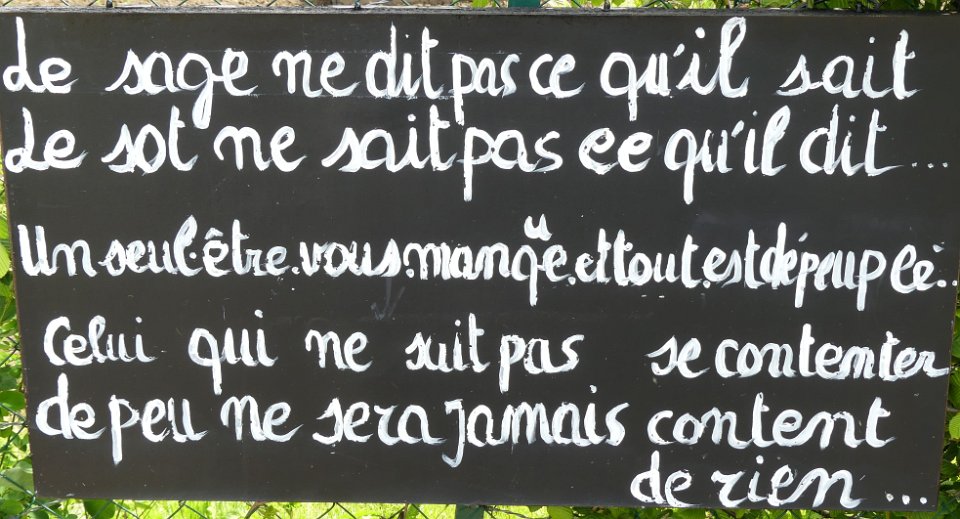 Le sage ne dit pas ce qu'il sait
Le sot ne sait pas ce qu'il dit...
Un seul.être.vous.manqüe.et tout.est dépeuplé..
Celui qui ne suit pas se contenter
de peu ne sera jamais content
de rien...